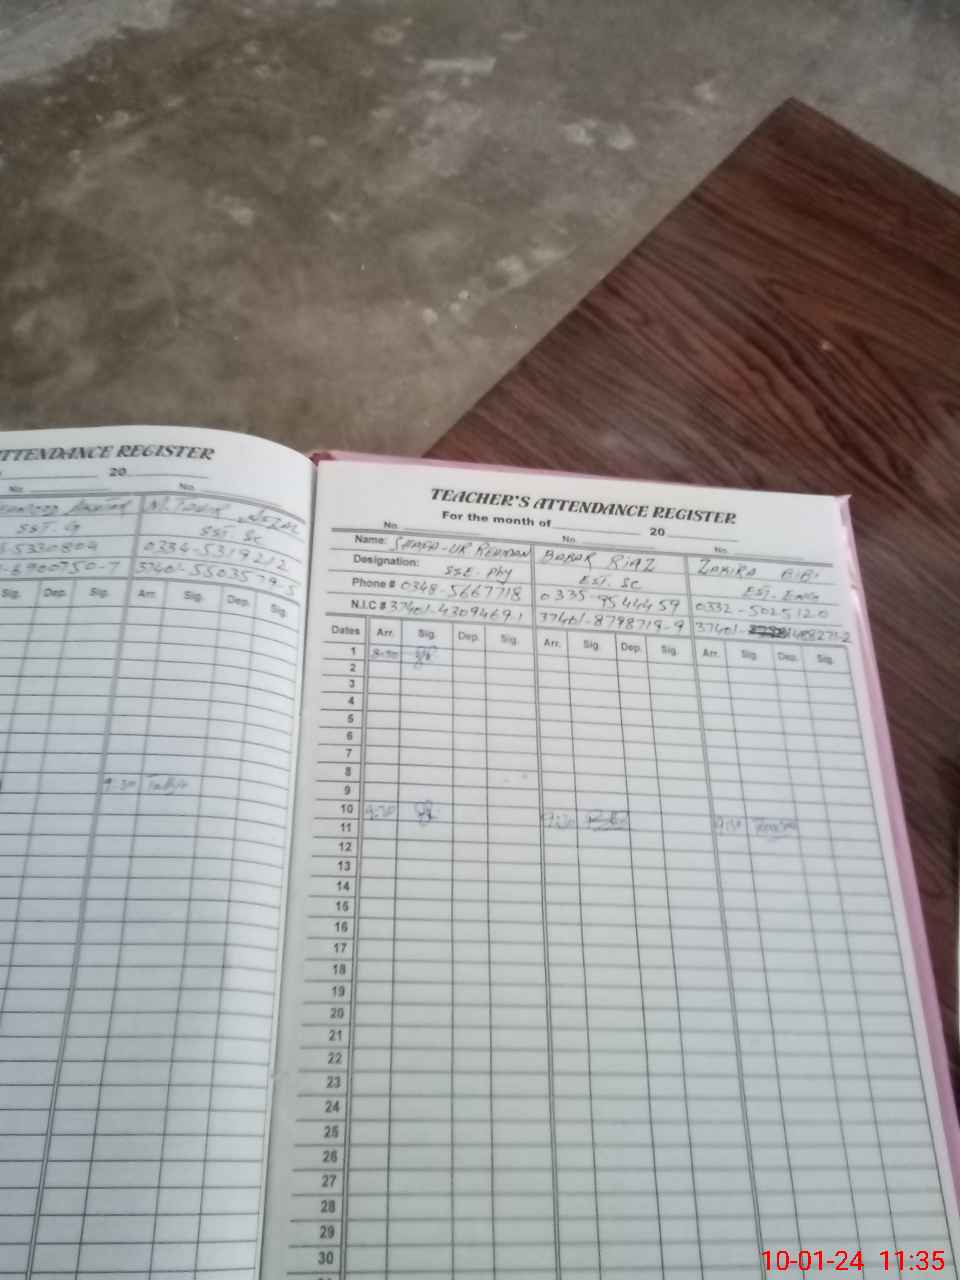 ATTENDANCE REGISTER
20
No.
M. Tahir
SST. G SST Sc
5330804 0334-5319212
6900750-7 37401-5503579-5
Sig. Dep. Sig. Arr. Sig. Dep. Sig.
9:30
TEACHER'S ATTENDANCE REGISTER
For the month of 20
No. No. No.
Name: SHAFA-UR REHMAN BABAR RIAZ ZAKIRA BIBI
Designation: SSE. Phy EST. SC EST. ENG
Phone # 0348-5667718 0335-9544459 0332-5025120
N.I.C # 37401-4309469-1 37401-8798719-9 37401-1488271-2
Dates Arr. Sig. Dep. Sig. Arr. Sig. Dep. Sig. Arr. Sig. Dep. Sig.
1 8:30
2
3
4
5
6
7
8
9
10 9:30 9:30 9:30
11
12
13
14
15
16
17
18
19
20
21
22
23
24
25
26
27
28
29
30
10-01-24 11:35